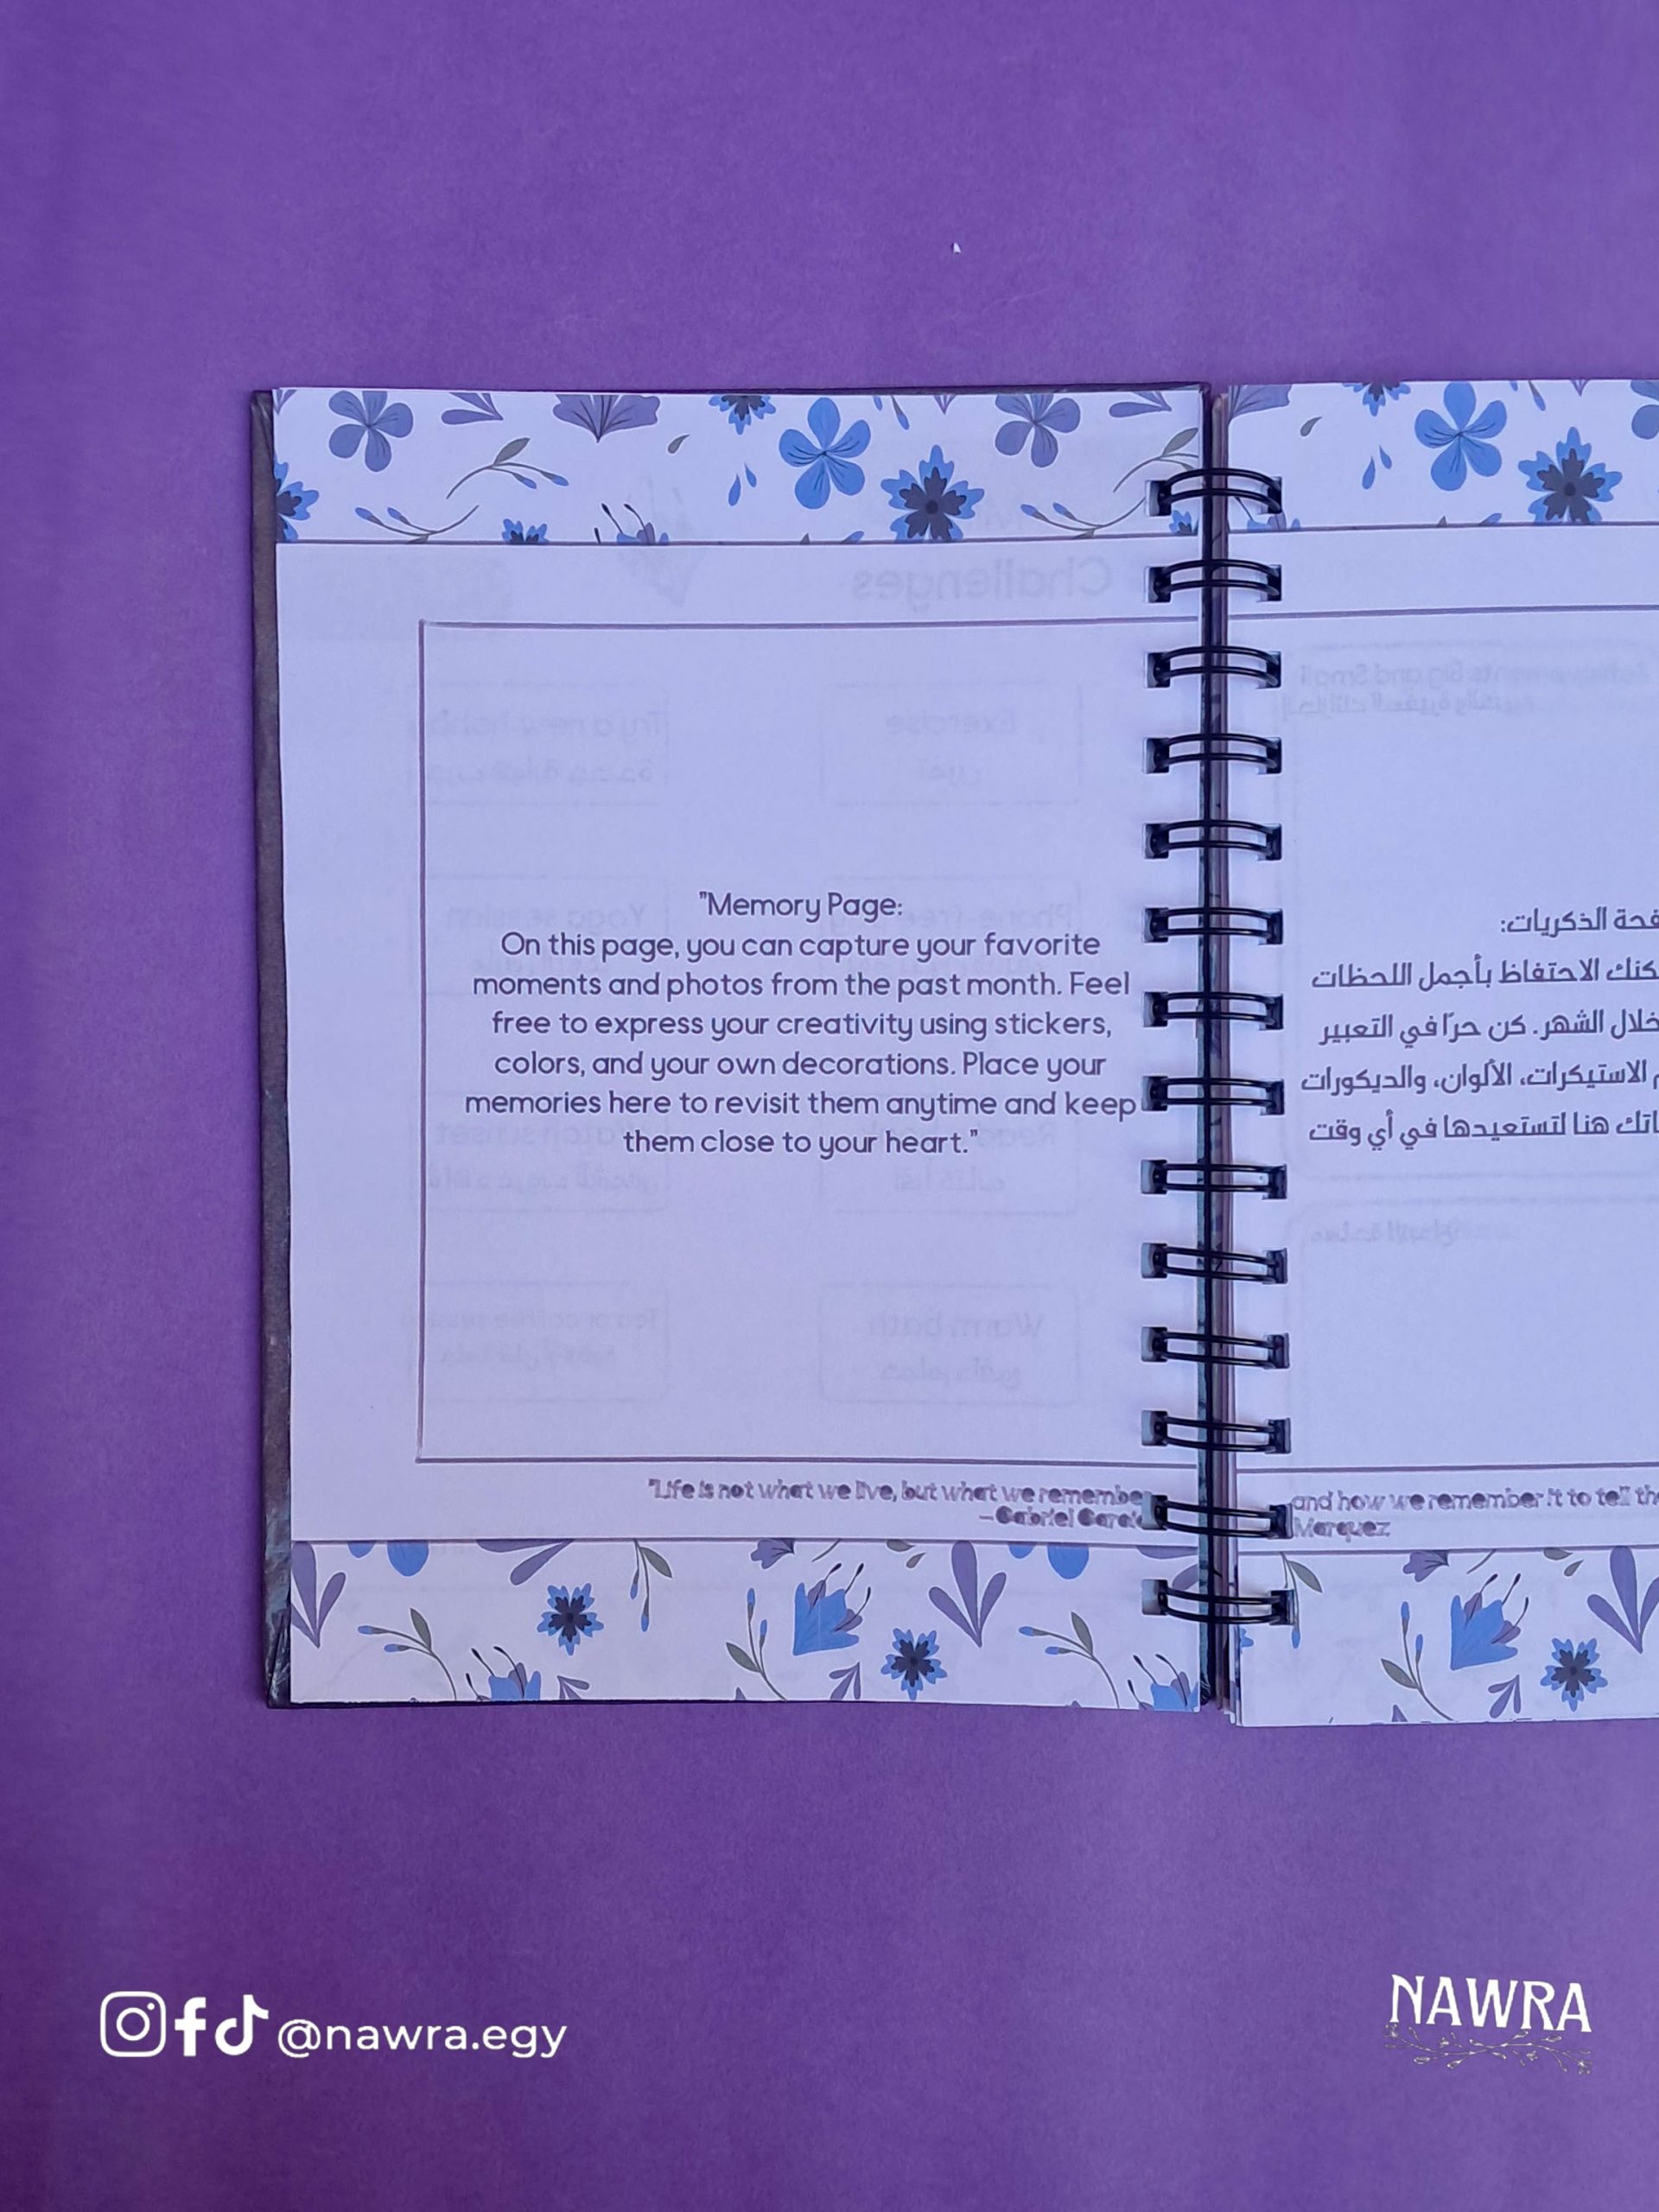 "Memory Page:
On this page, you can capture your favorite
moments and photos from the past month. Feel
free to express your creativity using stickers,
colors, and your own decorations. Place your
memories here to revisit them anytime and keep
them close to your heart."
"Life is not what we live, but what we remember
–Gabriel Garcia
الذكريات:
الاحتفاظ بأجمل اللحظات
خلال الشهر. كن حرًا في التعبير
الاستيكرات، الألوان، والديكورات
هنا لتستعيدها في أي وقت
and how we remember it to tell
Marquez
Challenges
Exercise
Yoga session
Warm bath
@nawra.egy
NAWRA